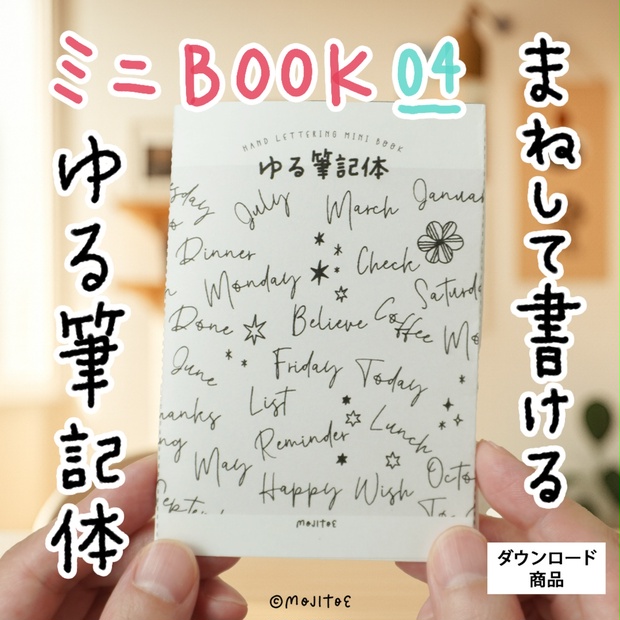 ミニBOOK 04
まねして書ける
ゆる筆記体
HAND LETTERING MINI BOOK
ゆる筆記体
July March
Dinner
Monday Check
Done Believe Coffee
June Friday Today
List
Reminder Lunch
May
Happy Wish
MOJITOE
ダウンロード
商品
©MOJITOE